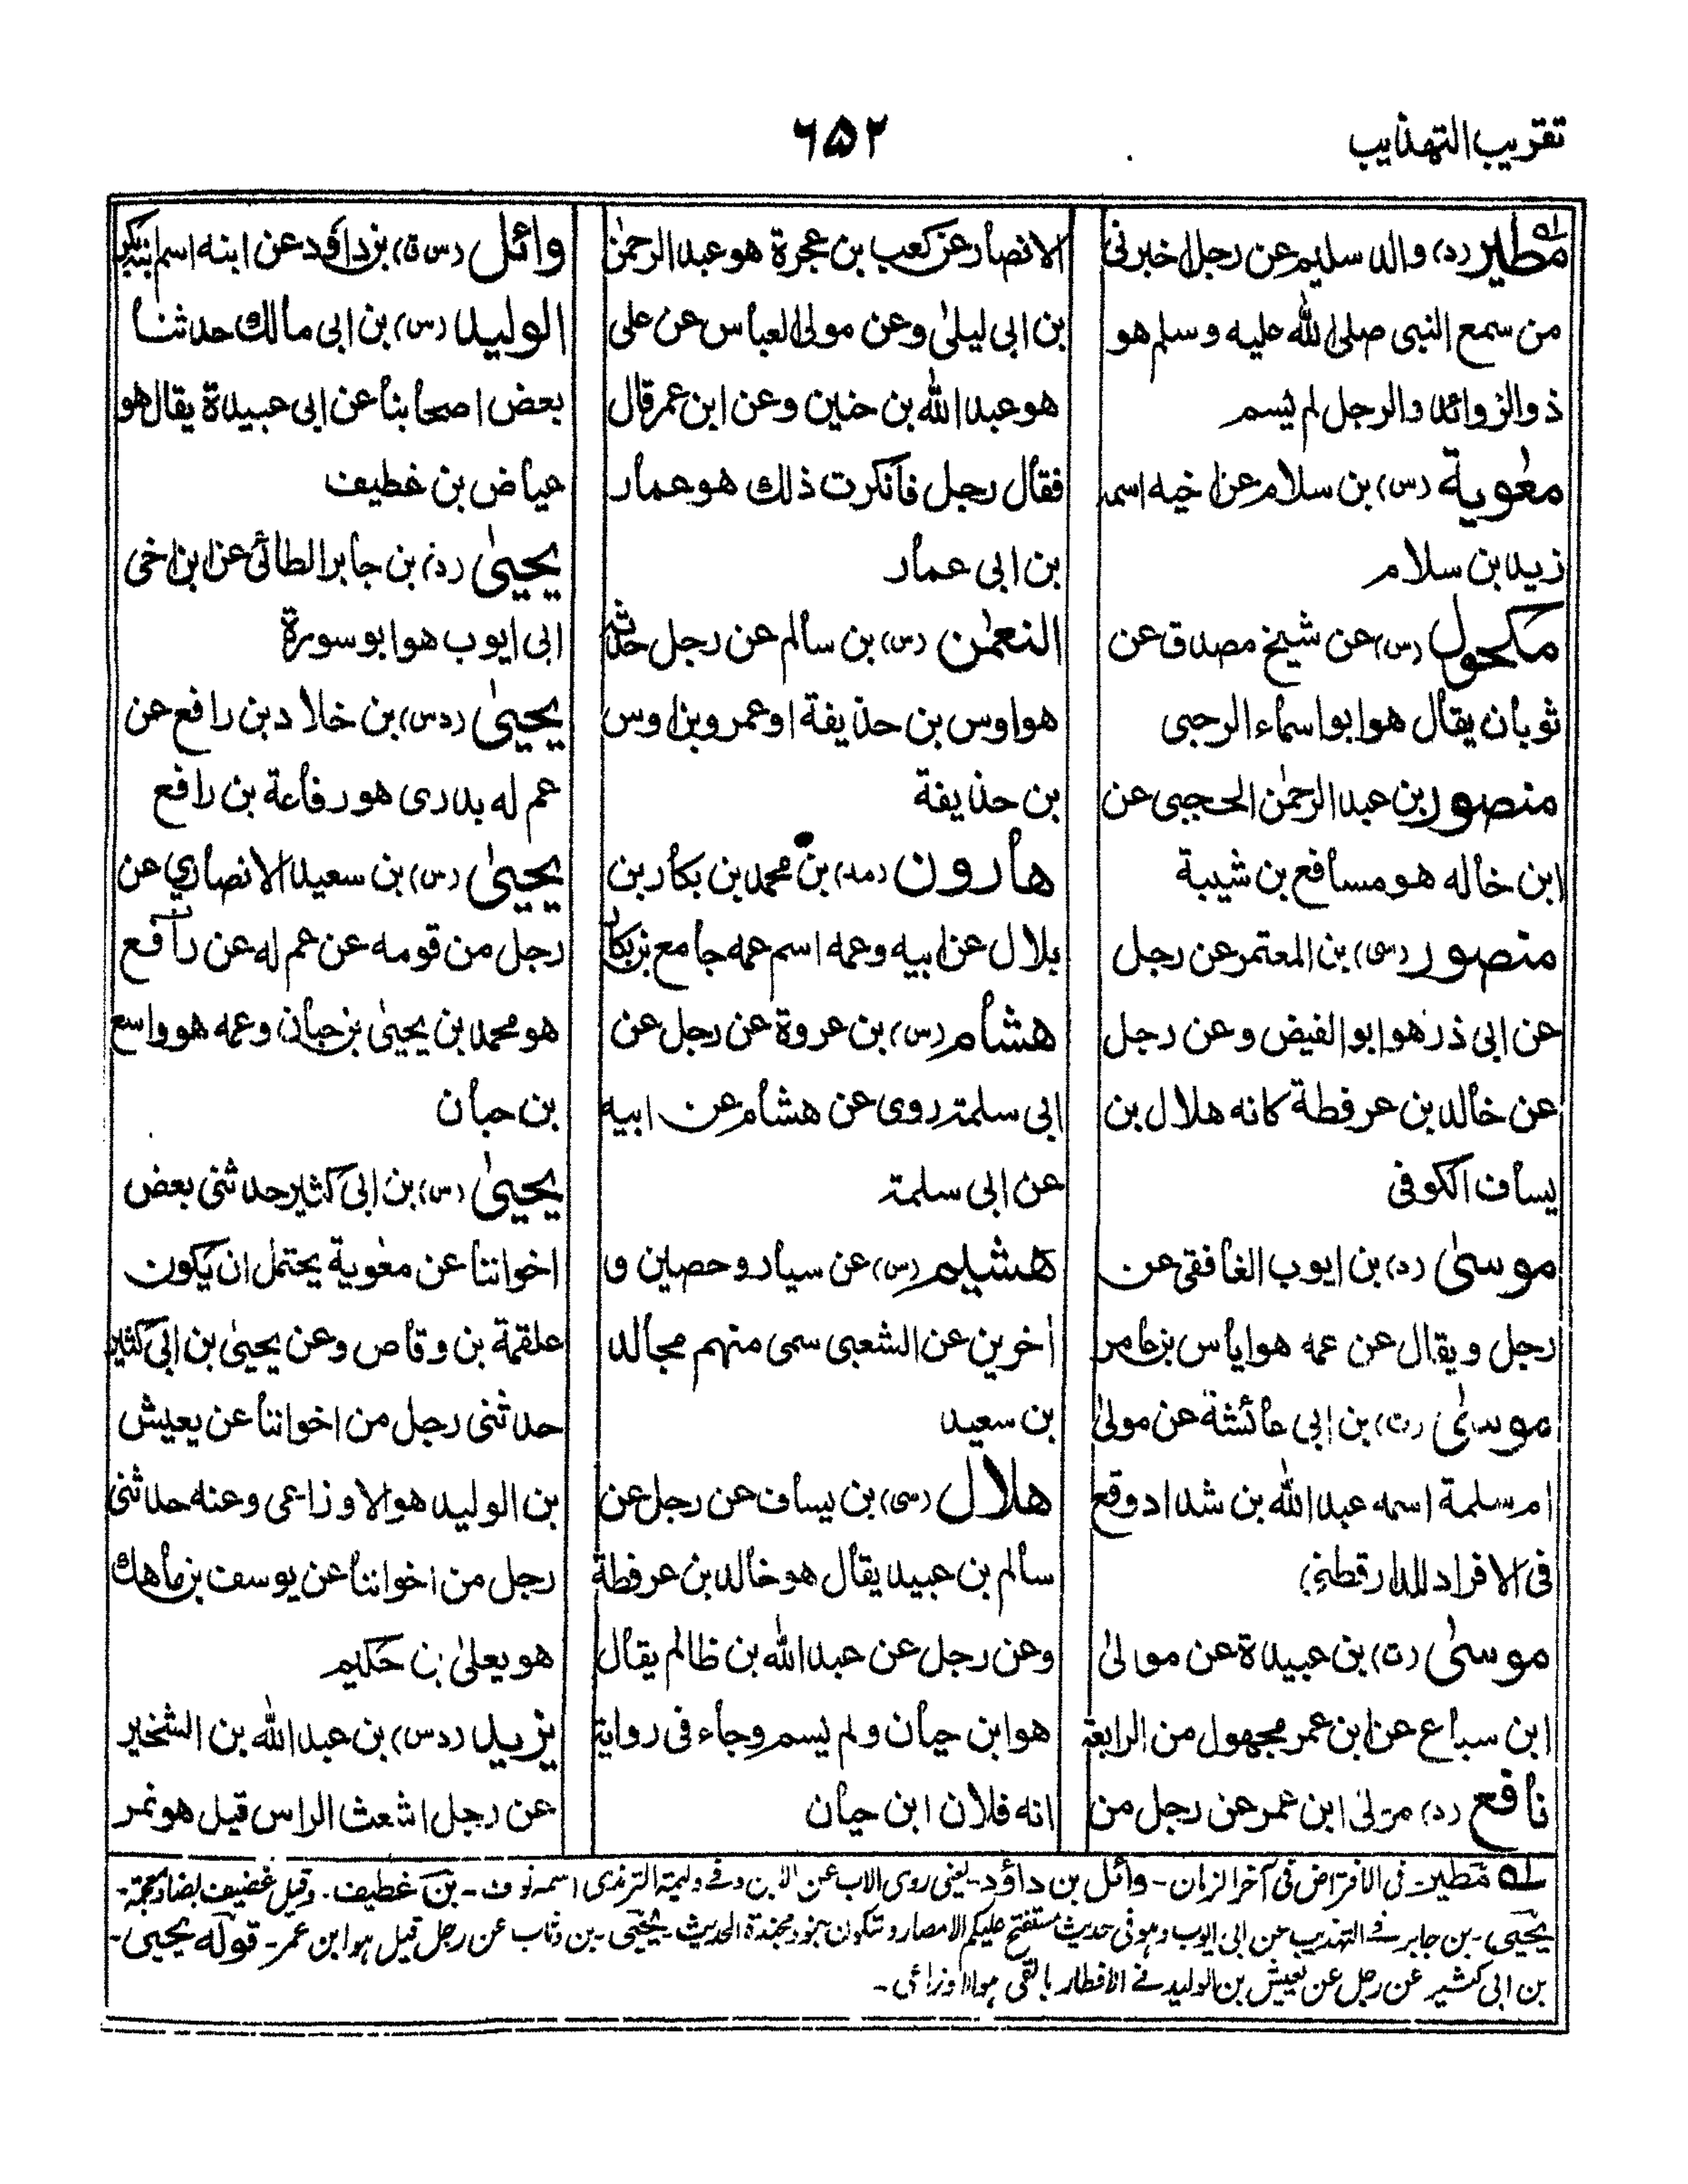 تقریب التهذیب
۶۵۲
مطیر (د) والد سلیم عن رجل اخبرنی
من سمع النبی صلی الله علیه وسلم هو
ذوالزوائد والرجل لم یسم
معٰویة (س) بن سلام عن اخیه اسمه
زید بن سلام
مکحول (س) عن شیخ مصدق عن
ثوبان یقال هو ابو اسماء الرحبی
منصور بن عبد الرحمٰن الحجبی عن
ابن خاله هو مسافع بن شیبة
منصور (سی) بن المعتمر عن رجل
عن ابی ذر هو ابو الفیض وعن رجل
عن خالد بن عرفطة کانه هلال بن
یساف الکوفی
موسیٰ (د) بن ایوب الغافقی عن
رجل ویقال عن عمه هو ایاس بن عامر
موسیٰ (ت) بن ابی عائشة عن مولیٰ
ام سلمة اسمه عبد الله بن شداد وقع
فی الافراد للدارقطنی
موسیٰ (ت) بن عبیدة عن مولیٰ
ابن سباع عن ابن عمر مجهول من الرابعة
نافع (د) مولیٰ ابن عمر عن رجل من
الانصار عن کعب بن عجرة هو عبد الرحمٰن
بن ابی لیلیٰ وعن مولی العباس عن علی
هو عبد الله بن حنین وعن ابن عمر قال
فقال رجل فانکرت ذلك هو عمار
بن ابی عمار
النعمٰن (س) بن سالم عن رجل حدثه
هو اوس بن حذیفة او عمرو بن اوس
بن حذیفة
هارون (مد) بن محمد بن بکار بن
بلال عن ابیه وعمه اسم عمه جامع بن بکار
هشام (س) بن عروة عن رجل عن
ابی سلمة روی عن هشام عن ابیه
عن ابی سلمة
هشیم (س) عن سیار وحصین و
اٰخرین عن الشعبی سمی منهم مجالد
بن سعید
هلال (سی) بن یساف عن رجل عن
سالم بن عبید یقال هو خالد بن عرفطة
وعن رجل عن عبد الله بن ظالم یقال
هو ابن حیان ولم یسم وجاء فی روایة
انه فلان ابن حیان
وائل (س ق) بن داؤد عن ابنه اسم ابنه بکر
الولید (س) بن ابی مالك حدثنا
بعض اصحابنا عن ابی عبیدة یقال هو
عیاض بن غطیف
یحییٰ (د) بن جابر الطائی عن ابن اخی
ابی ایوب هو ابو سورة
یحییٰ (دس) بن خلاد بن رافع عن
عم له بدری هو رفاعة بن رافع
یحییٰ (س) بن سعید الانصاری عن
رجل من قومه عن عم له عن رافع
هو محمد بن یحییٰ بن حبان وعمه هو واسع
بن حبان
یحییٰ (س) بن ابی کثیر حدثنی بعض
اخواننا عن معٰویة یحتمل ان یکون
علقمة بن وقاص وعن یحییٰ بن ابی کثیر
حدثنی رجل من اخواننا عن یعیش
بن الولید هو الاوزاعی وعنه حدثنی
رجل من اخواننا عن یوسف بن ماهك
هو یعلیٰ بن حکیم
یزید (دس) بن عبد الله بن الشخیر
عن رجل اشعث الراس قیل هو نمر
له مطیر۔ فی الافتراض فی آخر الزمان۔ وائل بن داؤد۔ یعنی روی الاب عن الابن وفے ولیمة الترمذی اسمه نوف۔ بن غطیف۔ وقیل غضیف بضاد معجمة۔
یحیی۔ بن جابر فے التهذیب عن ابی ایوب وهو فی حدیث ستفتح علیکم الامصار وستکون جنود مجندة الحدیث۔ یحیی۔ بن وثاب عن رجل قیل هو ابن عمر۔ قوله یحیی۔
بن ابی کثیر عن رجل عن یعیش بن الولید فے الافطار بالقی هو الاوزاعی۔